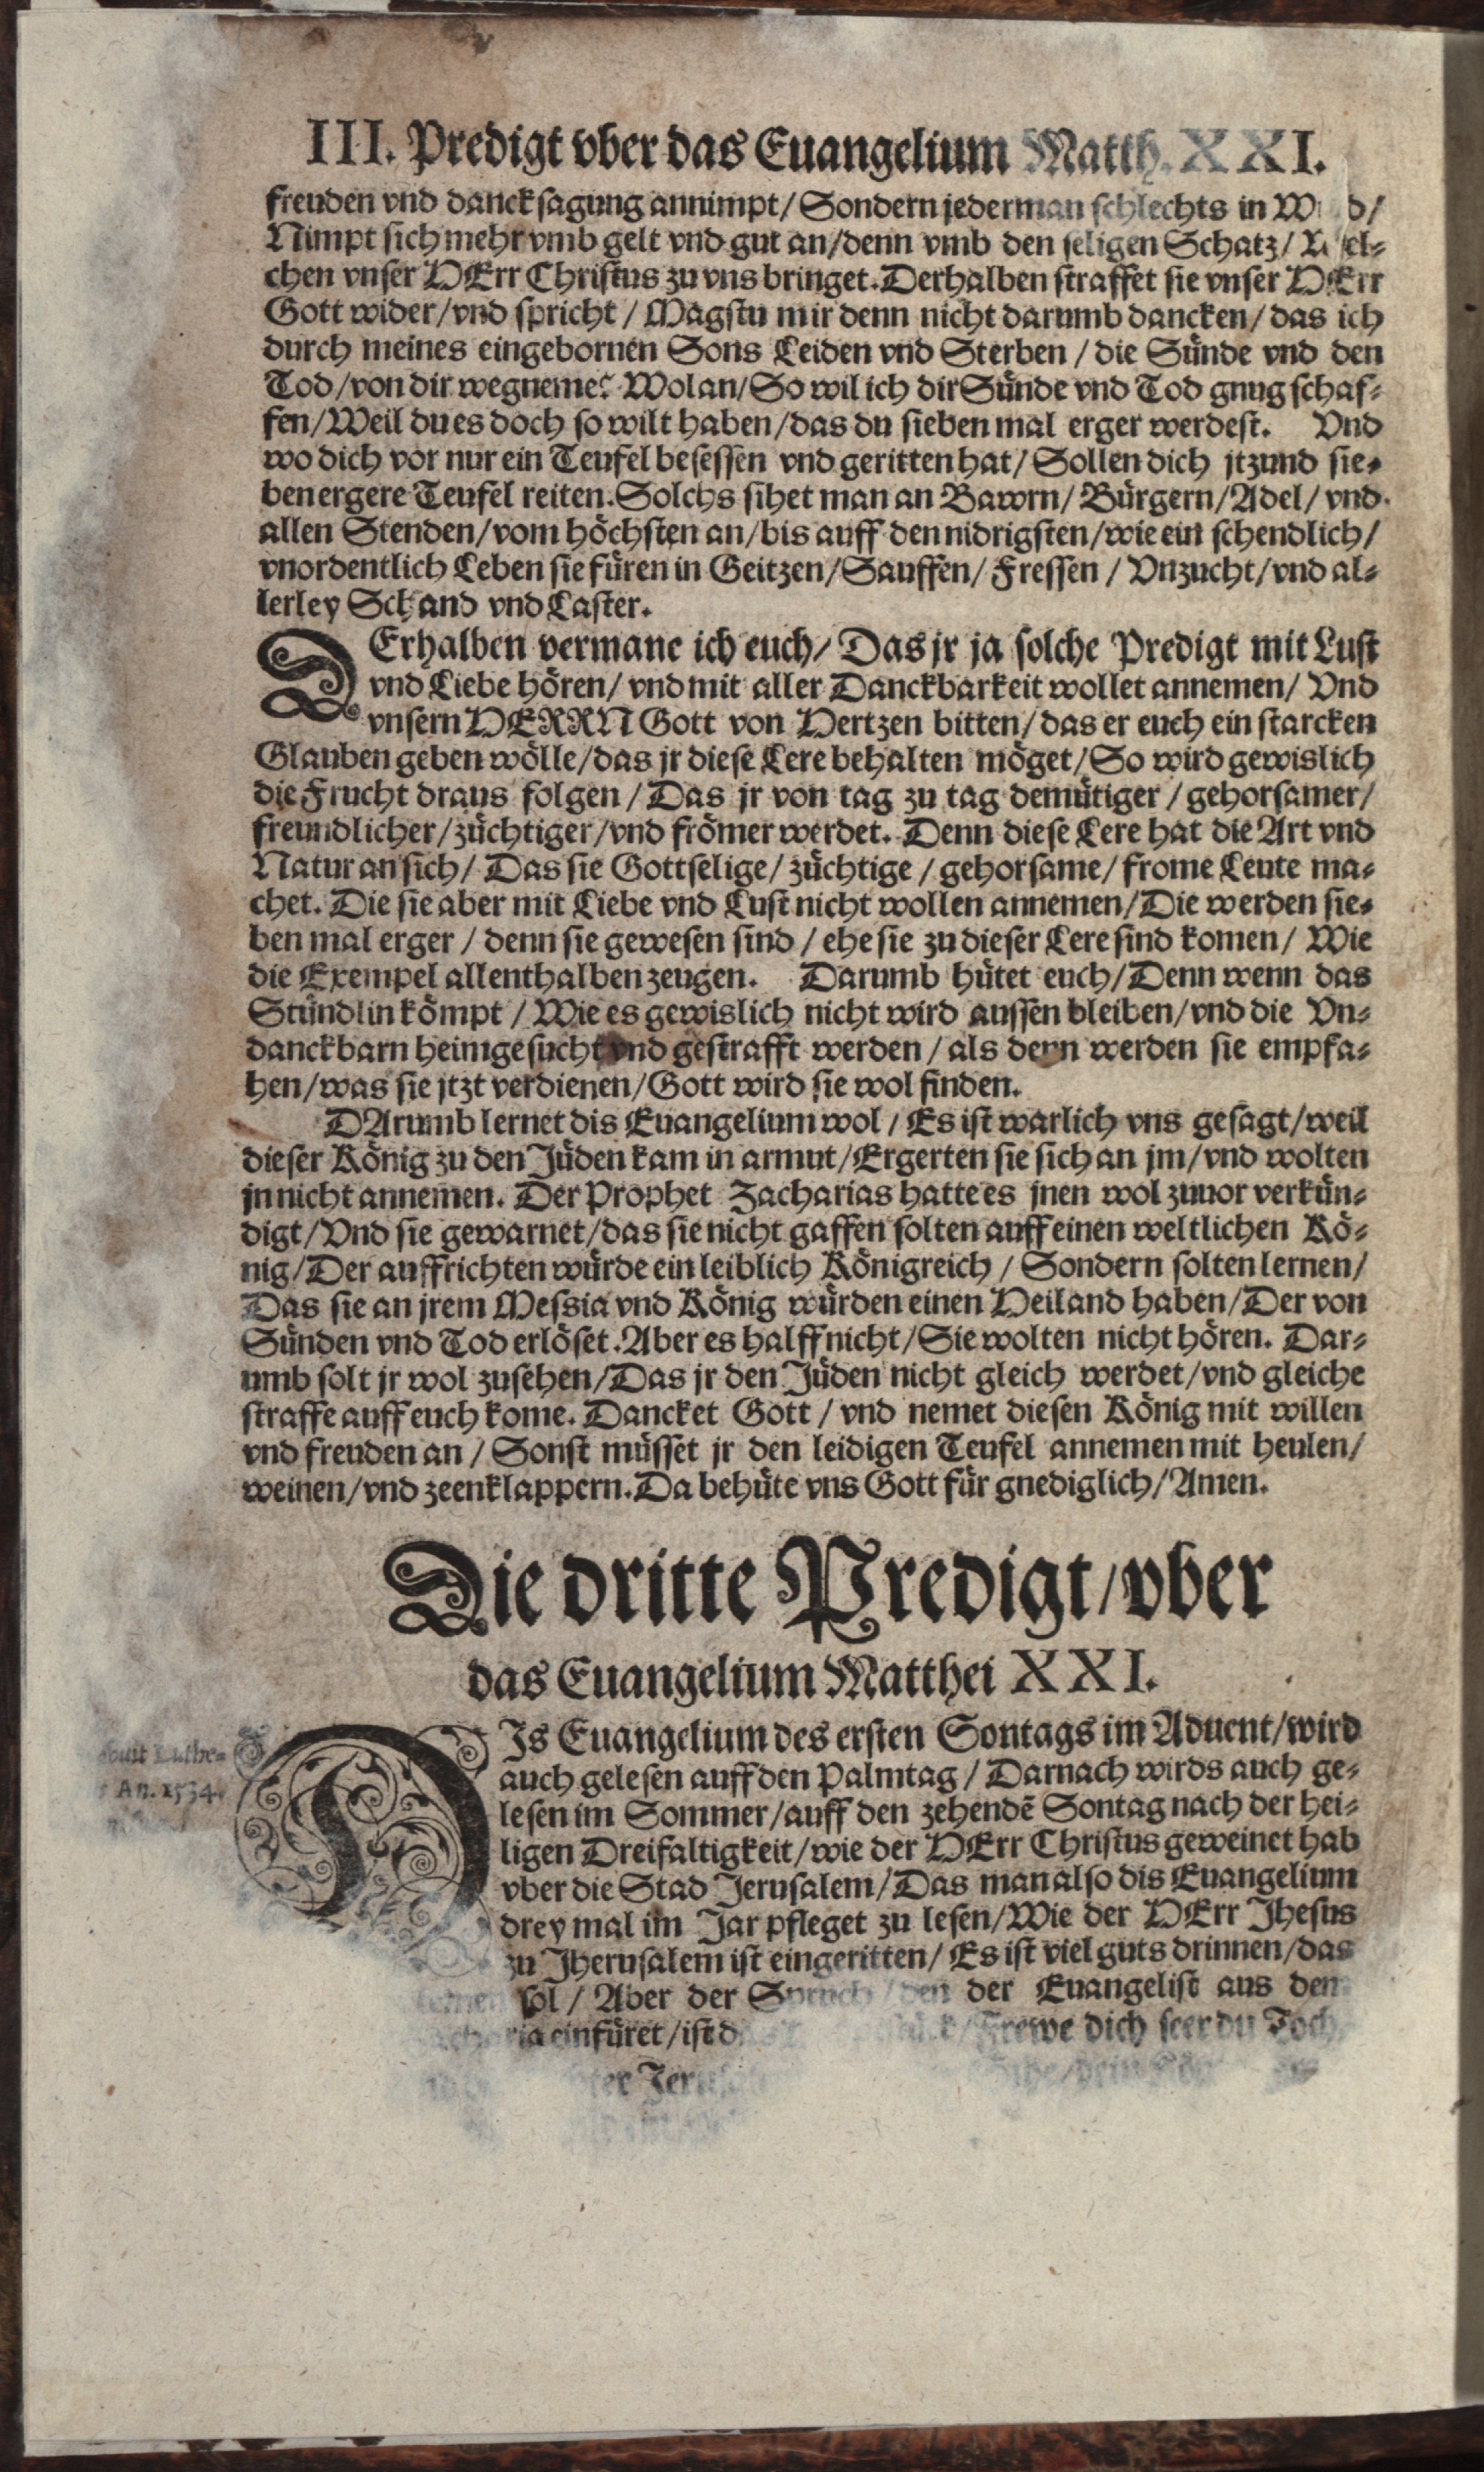 III. Predigt vber das Euangelium Matth. XXI.
freuden vnd dancksagung annimpt/ Sondern jederman schlechts in
Nimpt sich mehr vmb gelt vnd gut an/denn vmb den seligen Schatz/ Wel-
chen vnser HErr Christus zu vns bringet. Derhalben straffet sie vnser HErr
Gott wider/vnd spricht / Magstu mir denn nicht darumb dancken/ das ich
durch meines eingebornen Sons Leiden vnd Sterben / die Sünde vnd den
Tod/von dir wegneme? Wolan/So wil ich dir Sünde vnd Tod gnug schaf-
fen/Weil du es doch so wilt haben/das du sieben mal erger werdest. Vnd
wo dich vor nur ein Teufel besessen vnd geritten hat/ Sollen dich jtzund sie-
ben ergere Teufel reiten. Solchs sihet man an Bawrn/ Bürgern/ Adel/ vnd
allen Stenden/vom höchsten an/bis auff den nidrigsten/wie ein schendlich/
vnordentlich Leben sie füren in Geitzen/Sauffen/ Fressen / Vnzucht/vnd al-
lerley Schand vnd Laster.
DErhalben vermane ich euch/ Das jr ja solche Predigt mit Lust
vnd Liebe hören/ vnd mit aller Danckbarkeit wollet annemen/ Vnd
vnsern HERRN Gott von Hertzen bitten/das er euch ein starcken
Glauben geben wölle/das jr diese Lere behalten möget/So wird gewislich
die Frucht draus folgen / Das jr von tag zu tag demütiger / gehorsamer/
freundlicher/züchtiger/vnd frömer werdet. Denn diese Lere hat die Art vnd
Natur an sich/ Das sie Gottselige/ züchtige / gehorsame/ frome Leute ma-
chet. Die sie aber mit Liebe vnd Lust nicht wollen annemen/Die werden sie-
ben mal erger / denn sie gewesen sind / ehe sie zu dieser Lere sind komen/ Wie
die Exempel allenthalben zeugen. Darumb hütet euch/Denn wenn das
Stündlin kömpt / Wie es gewislich nicht wird aussen bleiben/vnd die Vn-
danckbarn heimgesucht vnd gestrafft werden / als denn werden sie empfa-
hen/was sie jtzt verdienen/Gott wird sie wol finden.
DArumb lernet dis Euangelium wol / Es ist warlich vns gesagt/weil
dieser König zu den Jüden kam in armut/Ergerten sie sich an jm/vnd wolten
jn nicht annemen. Der Prophet Zacharias hatte es jnen wol zuuor verkün-
digt/Vnd sie gewarnet/das sie nicht gaffen solten auff einen weltlichen Kö-
nig/Der auffrichten würde ein leiblich Königreich / Sondern solten lernen/
Das sie an jrem Messia vnd König würden einen Heiland haben/Der von
Sünden vnd Tod erlöset. Aber es halff nicht/Sie wolten nicht hören. Dar-
umb solt jr wol zusehen/Das jr den Jüden nicht gleich werdet/vnd gleiche
straffe auff euch kome. Dancket Gott / vnd nemet diesen König mit willen
vnd freuden an / Sonst müsset jr den leidigen Teufel annemen mit heulen/
weinen/vnd zeenklappern. Da behüte vns Gott für gnediglich/Amen.
Die dritte Predigt/vber
das Euangelium Matthei XXI.
Luthe-
An. 1534.
DIs Euangelium des ersten Sontags im Aduent/wird
auch gelesen auff den Palmtag / Darnach wirds auch ge-
lesen im Sommer/auff den zehendē Sontag nach der hei-
ligen Dreifaltigkeit/wie der HErr Christus geweinet hab
vber die Stad Jerusalem/Das man also dis Euangelium
drey mal im Jar pfleget zu lesen/Wie der HErr Jhesus
zu Jherusalem ist eingeritten/ Es ist viel guts drinnen/das
sol / Aber der Spruch / den der Euangelist aus dem
einfüret/ist Frewe dich seer du Toch